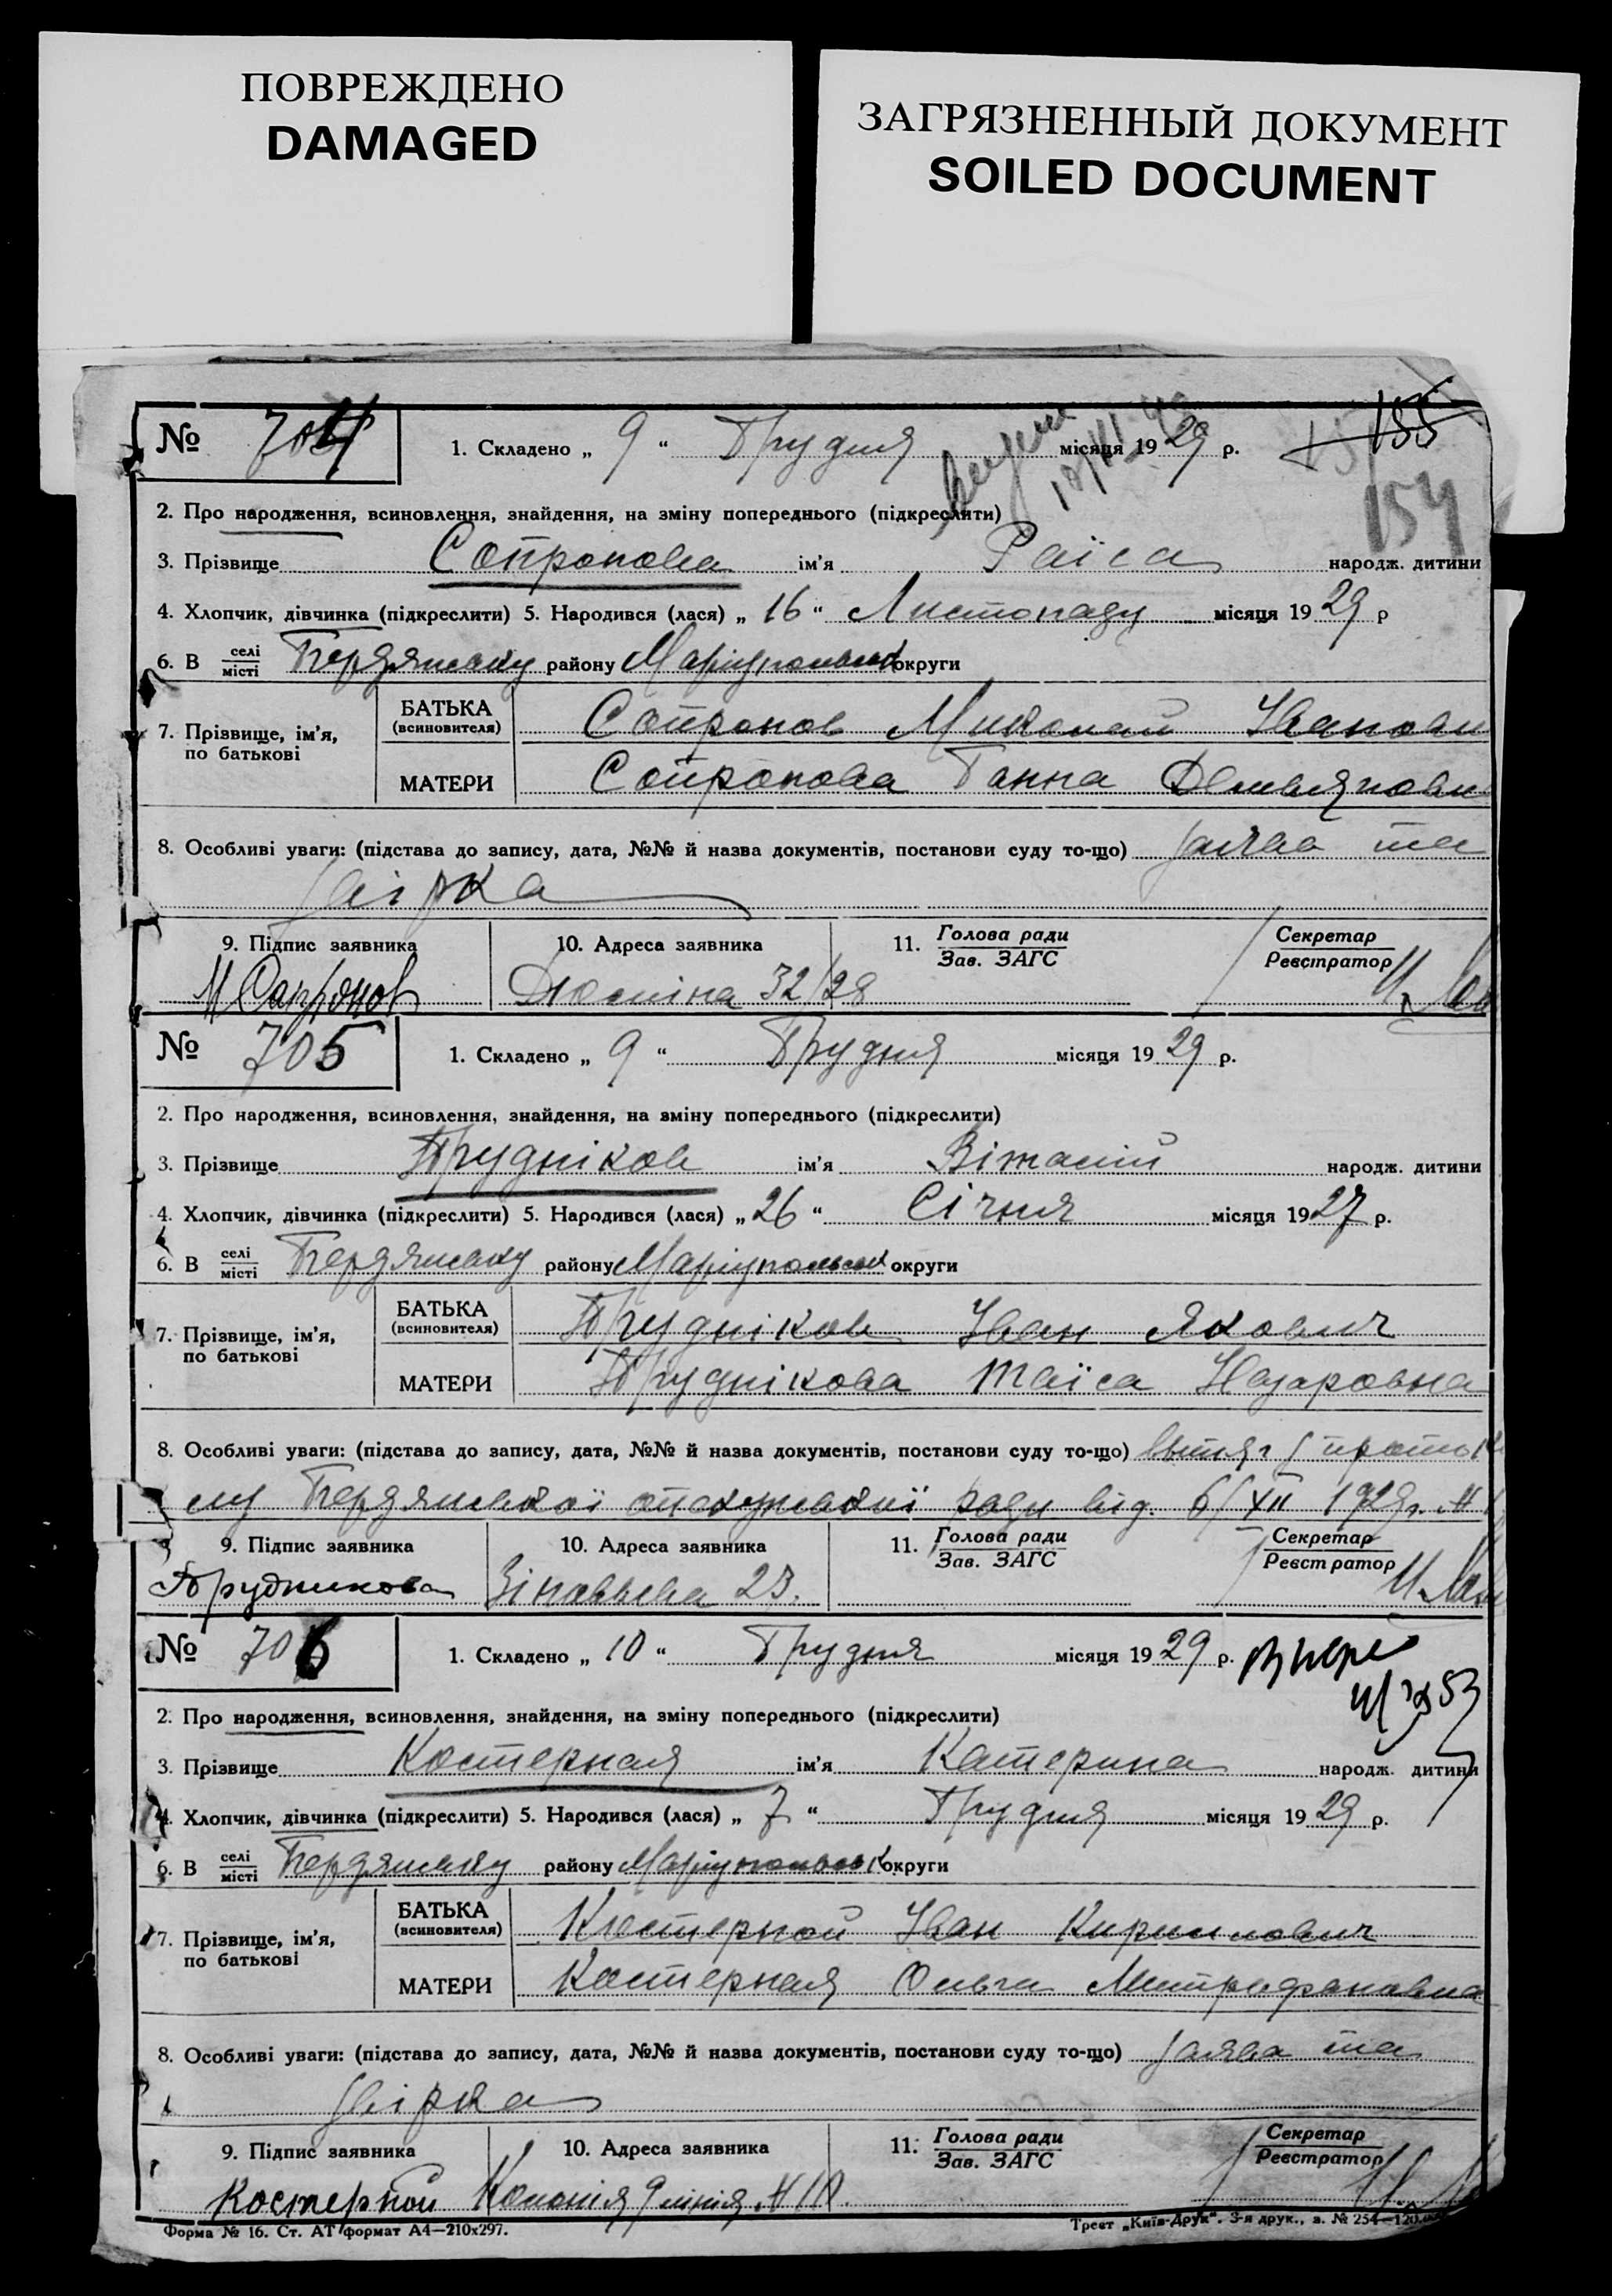 ПОВРЕЖДЕНО
DAMAGED
ЗАГРЯЗНЕННЫЙ ДОКУМЕНТ
SOILED DOCUMENT
№ 704 1. Складено „ 9 “ Грудня місяця 1929 р. 155
154
2. Про народження, всиновлення, знайдення, на зміну попереднього (підкреслити)
3. Прізвище Сопронова ім'я Раїса народж. дитини
4. Хлопчик, дівчинка (підкреслити) 5. Народився (лася) „ 16 “ Листопаду місяця 1929 р
6. В селі місті Бердянську району Маріупольськ округи
7. Прізвище, ім'я, по батькові
БАТЬКА (всиновителя) Сопронов Миколай Іванови
МАТЕРИ Сопронова Ганна Демьяновн
8. Особливі уваги: (підстава до запису, дата, №№ й назва документів, постанови суду то-що) заява та
звірка
9. Підпис заявника 10. Адреса заявника 11. Голова ради Зав. ЗАГС Секретар Реєстратор
М Сапронов Дюміна 32/28
№ 705 1. Складено „ 9 “ Грудня місяця 1929 р.
2. Про народження, всиновлення, знайдення, на зміну попереднього (підкреслити)
3. Прізвище Трудніков ім'я Віталій народж. дитини
4. Хлопчик, дівчинка (підкреслити) 5. Народився (лася) „ 26 “ Січня місяця 1927 р.
6. В селі місті Бердянську району Маріупольськ округи
7. Прізвище, ім'я, по батькові
БАТЬКА (всиновителя) Трудніков Іван Якович
МАТЕРИ Труднікова Таїса Назаровна
8. Особливі уваги: (підстава до запису, дата, №№ й назва документів, постанови суду то-що) витяг з прото
лу Бердянської опекунської ради від. 6/XII 1929р. №
9. Підпис заявника 10. Адреса заявника 11. Голова ради Зав. ЗАГС Секретар Реєстратор
Трудникова Зіновьєва 23.
№ 706 1. Складено „ 10 “ Грудня місяця 1929 р.
2. Про народження, всиновлення, знайдення, на зміну попереднього (підкреслити)
3. Прізвище Костерная ім'я Катерина народж. дитини
4. Хлопчик, дівчинка (підкреслити) 5. Народився (лася) „ 7 “ Грудня місяця 1929 р.
6. В селі місті Бердянську району Маріупольськ округи
7. Прізвище, ім'я, по батькові
БАТЬКА (всиновителя) Костерной Іван Кирилович
МАТЕРИ Костерная Ольга Митрофановна
8. Особливі уваги: (підстава до запису, дата, №№ й назва документів, постанови суду то-що) заява та
звірка
9. Підпис заявника 10. Адреса заявника 11. Голова ради Зав. ЗАГС Секретар Реєстратор
Костерной Колонія 9 лінія №
Форма № 16. Ст. АТ формат А4—210х297. Трест „Київ-Друк“. 3-я друк., з. № 254—120.